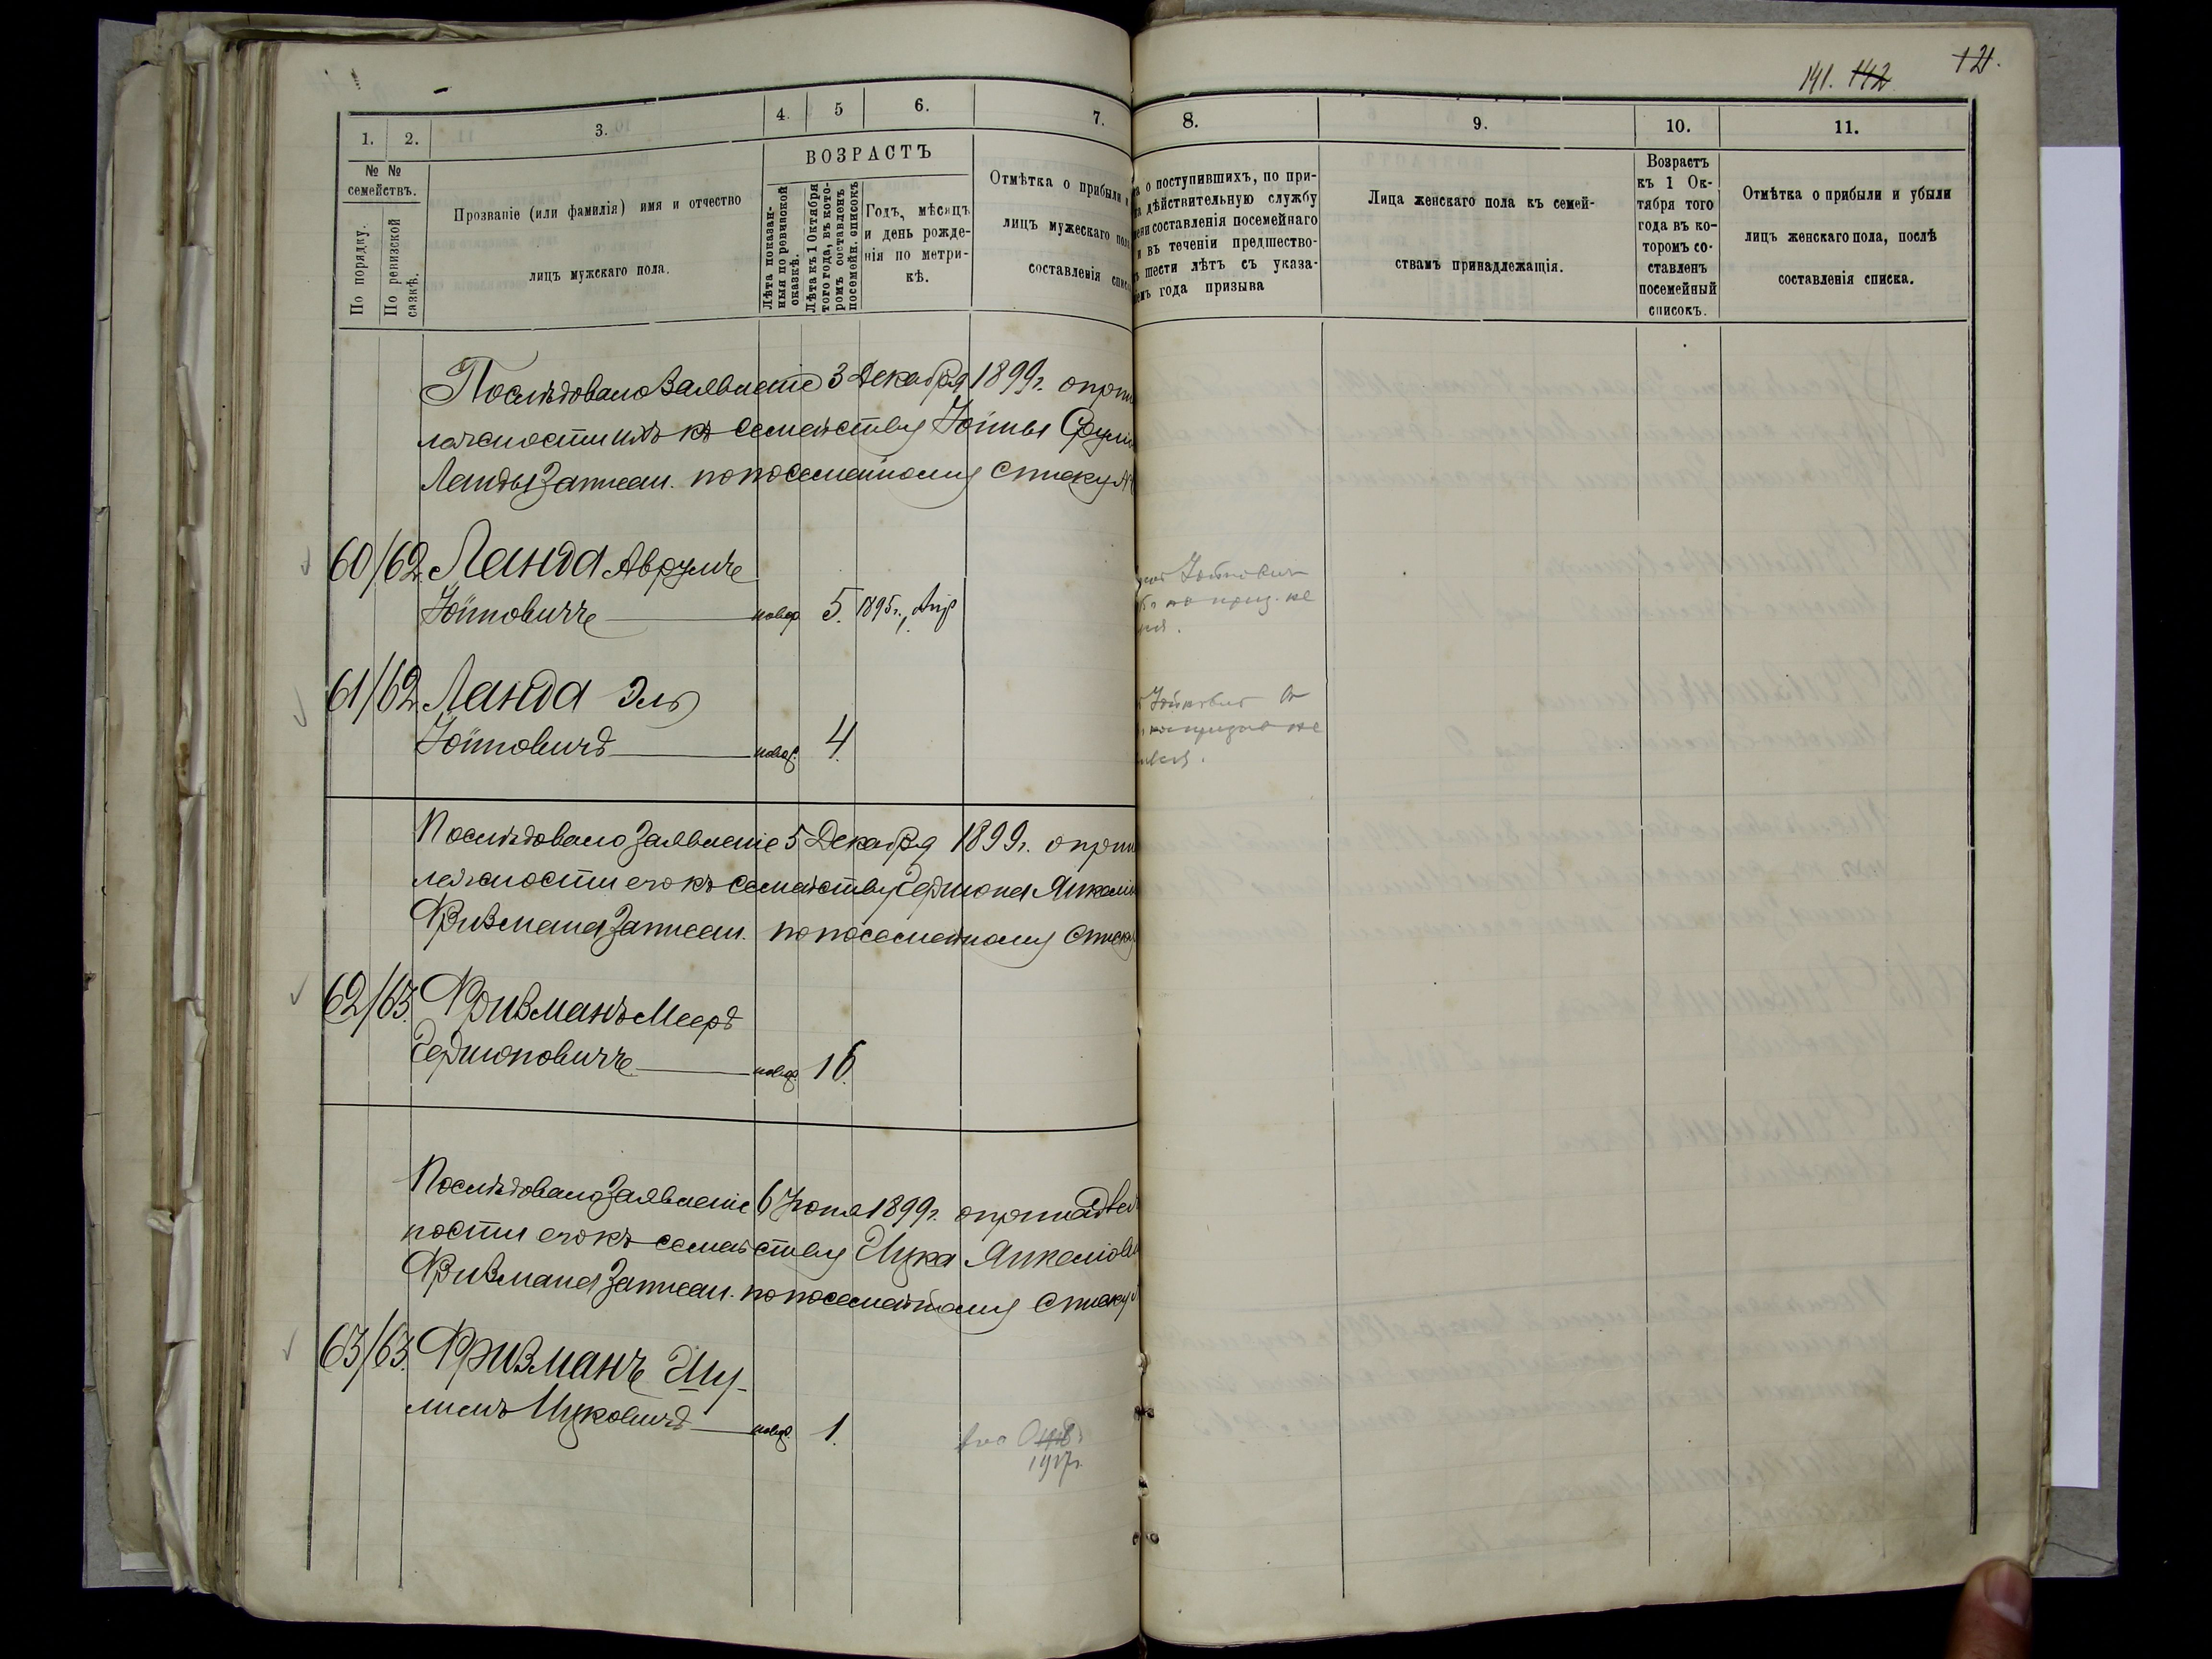 141. 142 121.
1. 2. 3. 4. 5 6. 7. 8. 9. 10. 11.
№ № семействъ.
По порядку.
По ревизской сказкѣ.
Прозваніе (или фамилія) имя и отчество
лицъ мужскаго пола.
ВОЗРАСТЪ
Лѣта показан-
ныя по ревизской
сказкѣ.
Лѣта къ 1 Октября
того года, въ кото-
ромъ составленъ
посемейн. списокъ
Годъ, мѣсяцъ
и день рожде-
нія по метри-
кѣ.
Отмѣтка о прибыли
лицъ мужескаго пола
составленія спис
а о поступившихъ, по при-
а дѣйствительную службу
мени составленія посемейнаго
и въ теченіи предшество-
ъ шести лѣтъ съ указа-
емъ года призыва
Лица женскаго пола къ семей-
ствамъ принадлежащія.
Возрастъ
къ 1 Ок-
тября того
года въ ко-
торомъ со-
ставленъ
посемейный
списокъ.
Отмѣтка о прибыли и убыли
лицъ женскаго пола, послѣ
составленія списка.
Послѣдовало Заявленіе 3 Декабря 1899 г. о при
лежности ихъ къ семейству Іойны Сруліо
Ланды Записан. по посемейному списку №
60/62 Ланда Аврумъ
Іойновичъ новор. 5. 1895 г., Апр
61/62 Ланда Эль
Іойновичъ новор. 4.
Послѣдовало Заявленіе 5 Декабря 1899 г. о при
лежности его къ семейству Гершона Янкеліо
Фризмана Записан. по посемейному списку
62/63. Фризманъ Мееръ
Гершоновичъ новор. 16.
Послѣдовало Заявленіе 6 Іюня 1899 г. о принадлеж
ности его къ семейству Ицка Янкеліов
Фризмана Записан. по посемейному списку
63/63. Фризманъ Шу-
лимъ Ицковичъ новор. 1.
1917 г.
Іойнович
по приз. не
Іойнович
не